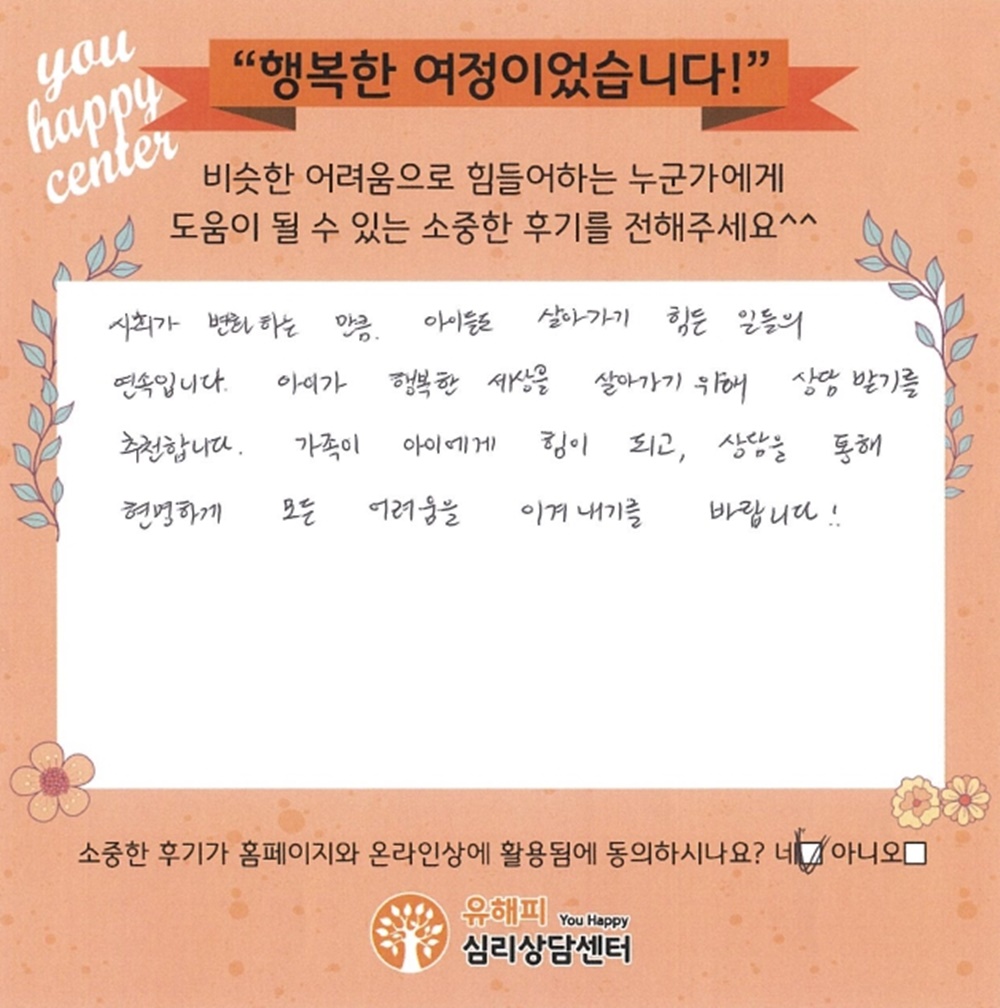 you
happy
center
“행복한 여정이었습니다!”
비슷한 어려움으로 힘들어하는 누군가에게
도움이 될 수 있는 소중한 후기를 전해주세요^^
사회가 변화하는 만큼. 아이들도 살아가기 힘든 일들의
연속입니다. 아이가 행복한 세상을 살아가기 위해 상담 받기를
추천합니다. 가족이 아이에게 힘이 되고, 상담을 통해
현명하게 모든 어려움을 이겨내기를 바랍니다!!
소중한 후기가 홈페이지와 온라인상에 활용됨에 동의하시나요? 네 아니오
유해피 You Happy
심리상담센터